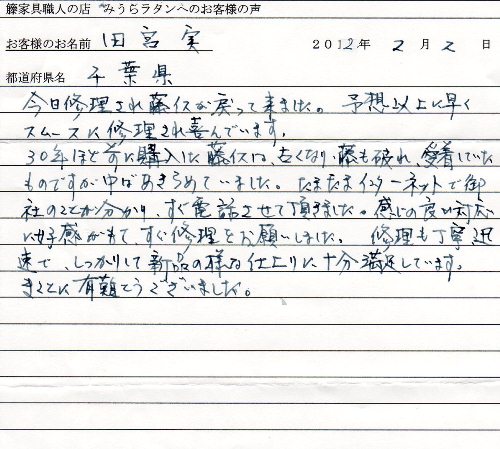 籐家具職人の店 みうらラタンへのお客様の声
お客様のお名前 田宮 実 2012年 2月 2日
都道府県名 千葉県
今日修理され藤イスが戻って来ました。予想以上に早く
スムースに修理され喜んでいます。
30年ほど前に購入した藤イスは、古くなり藤も破れ、愛着していた
ものですが中ばあきらめていました。たまたまインターネットで御
社のことが分かり、すぐ電話させて頂きました。感じの良い対応
に好感がもて、すぐ修理をお願いしました。修理も丁寧、迅
速で、しっかりして新品の様な仕上りに十分満足しています。
まことに有難とうございました。